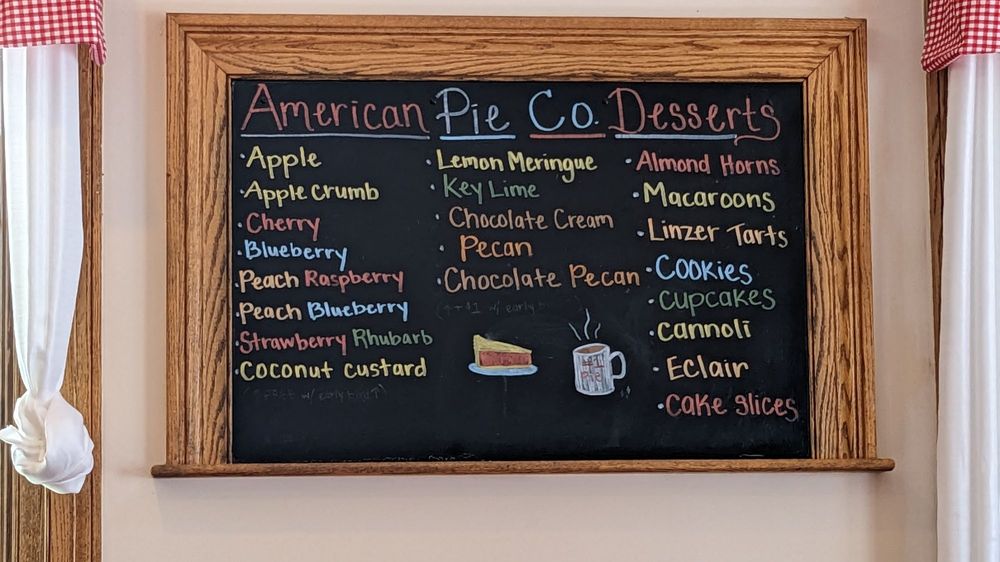 American Pie Co. Desserts
·Apple
·Apple Crumb
·Cherry
·Blueberry
·Peach Raspberry
·Peach Blueberry
·Strawberry Rhubarb
·Coconut custard
(FREE w/ early bird↑)
·Lemon Meringue
·Key Lime
·Chocolate Cream
·Pecan
·Chocolate Pecan
(↑+$1 w/ early
·Almond Horns
·Macaroons
·Linzer Tarts
·Cookies
·cupcakes
·cannoli
·Eclair
·cake slices
Pie